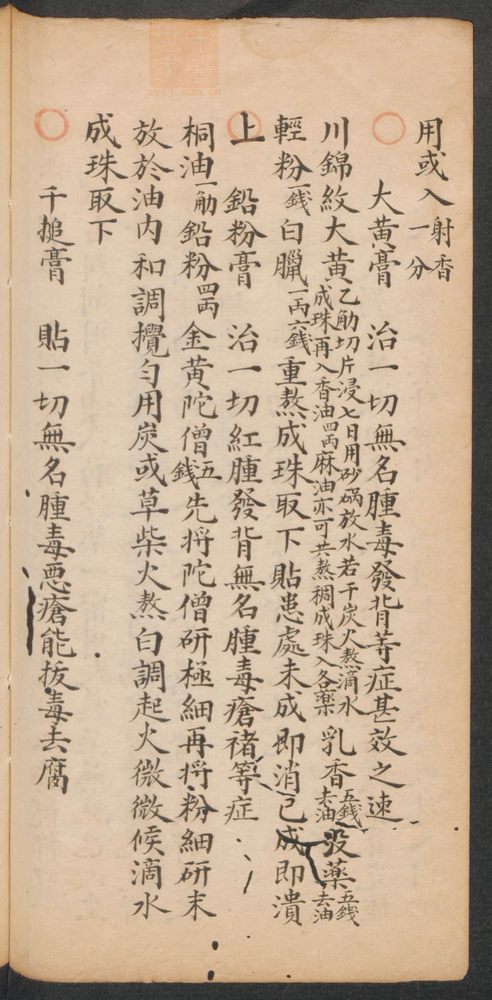 用或入射香一分
大黄膏 治一切無名腫毒發背等症甚效之速
川錦紋大黄乙觔切片浸七日用砂碢放水若干炭火熬滴水成珠再入香油四両麻油亦可共熬稠成珠入各藥乳香五錢去油没藥五錢去油
輕粉一錢白臘一両六錢重熬成珠取下貼患處未成即消已成即潰
上 鉛粉膏 治一切紅腫發背無名腫毒瘡褚等症
桐油一觔鉛粉四両金黄陀僧五錢先将陀僧研極細再将粉細研末
放於油内和調攪匀用炭或草柴火熬白調起火微微候滴水
成珠取下
千搥膏 貼一切無名腫毒悪瘡能拔毒去腐